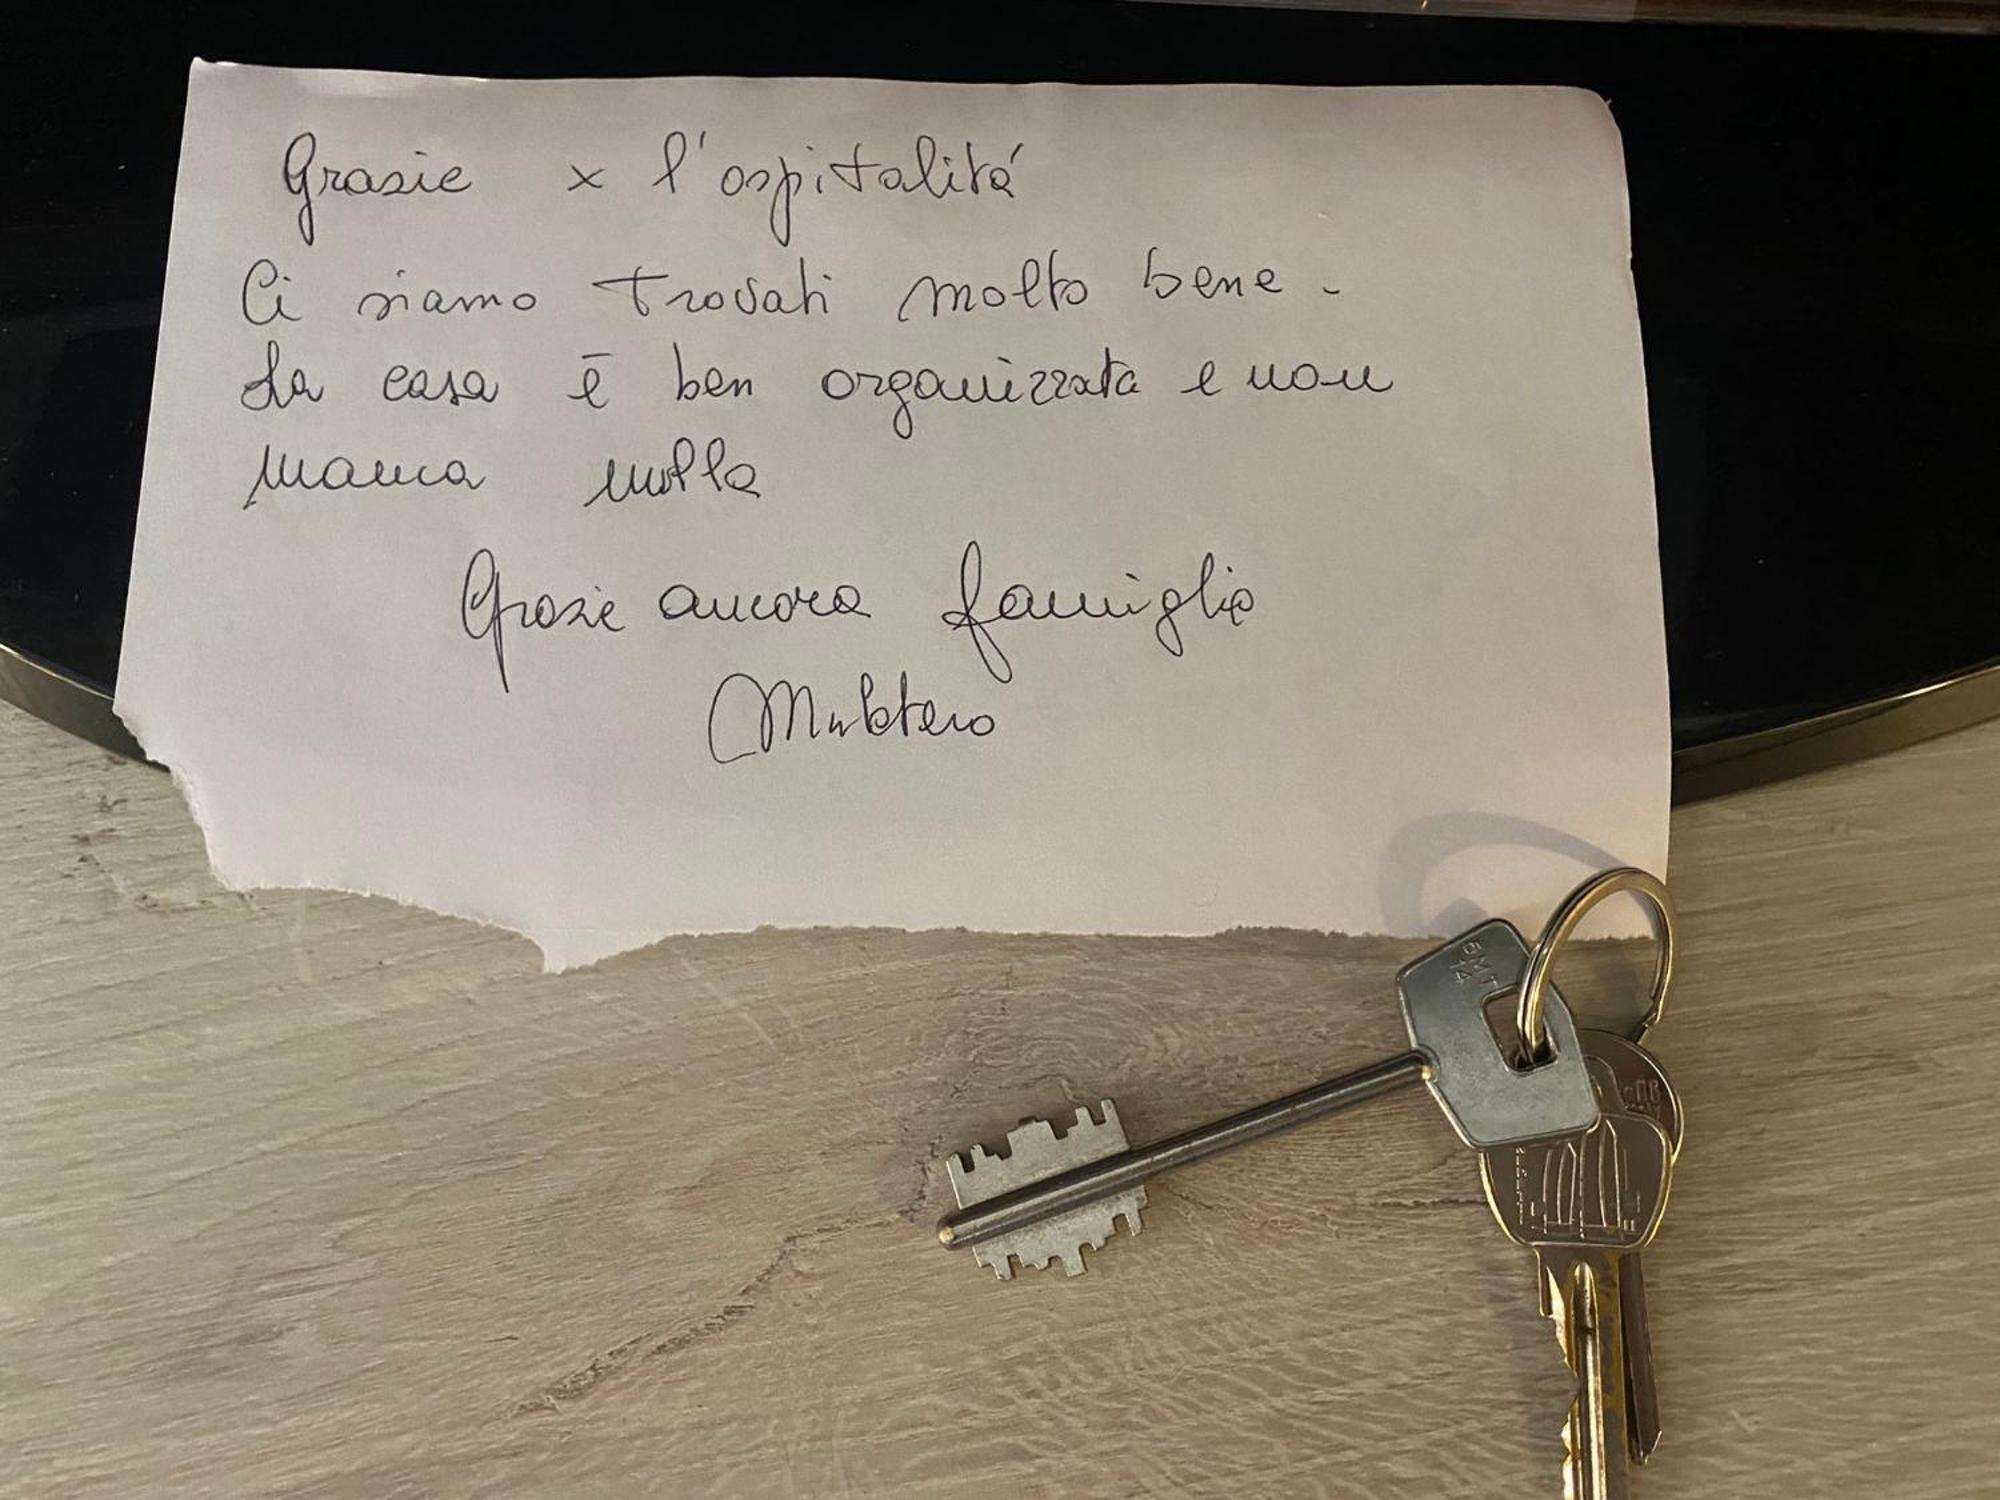 Grazie x l'ospitalitá
Ci siamo trovati molto bene.
La casa é ben organizzata e non
manca nulla
Grazie ancora famiglia